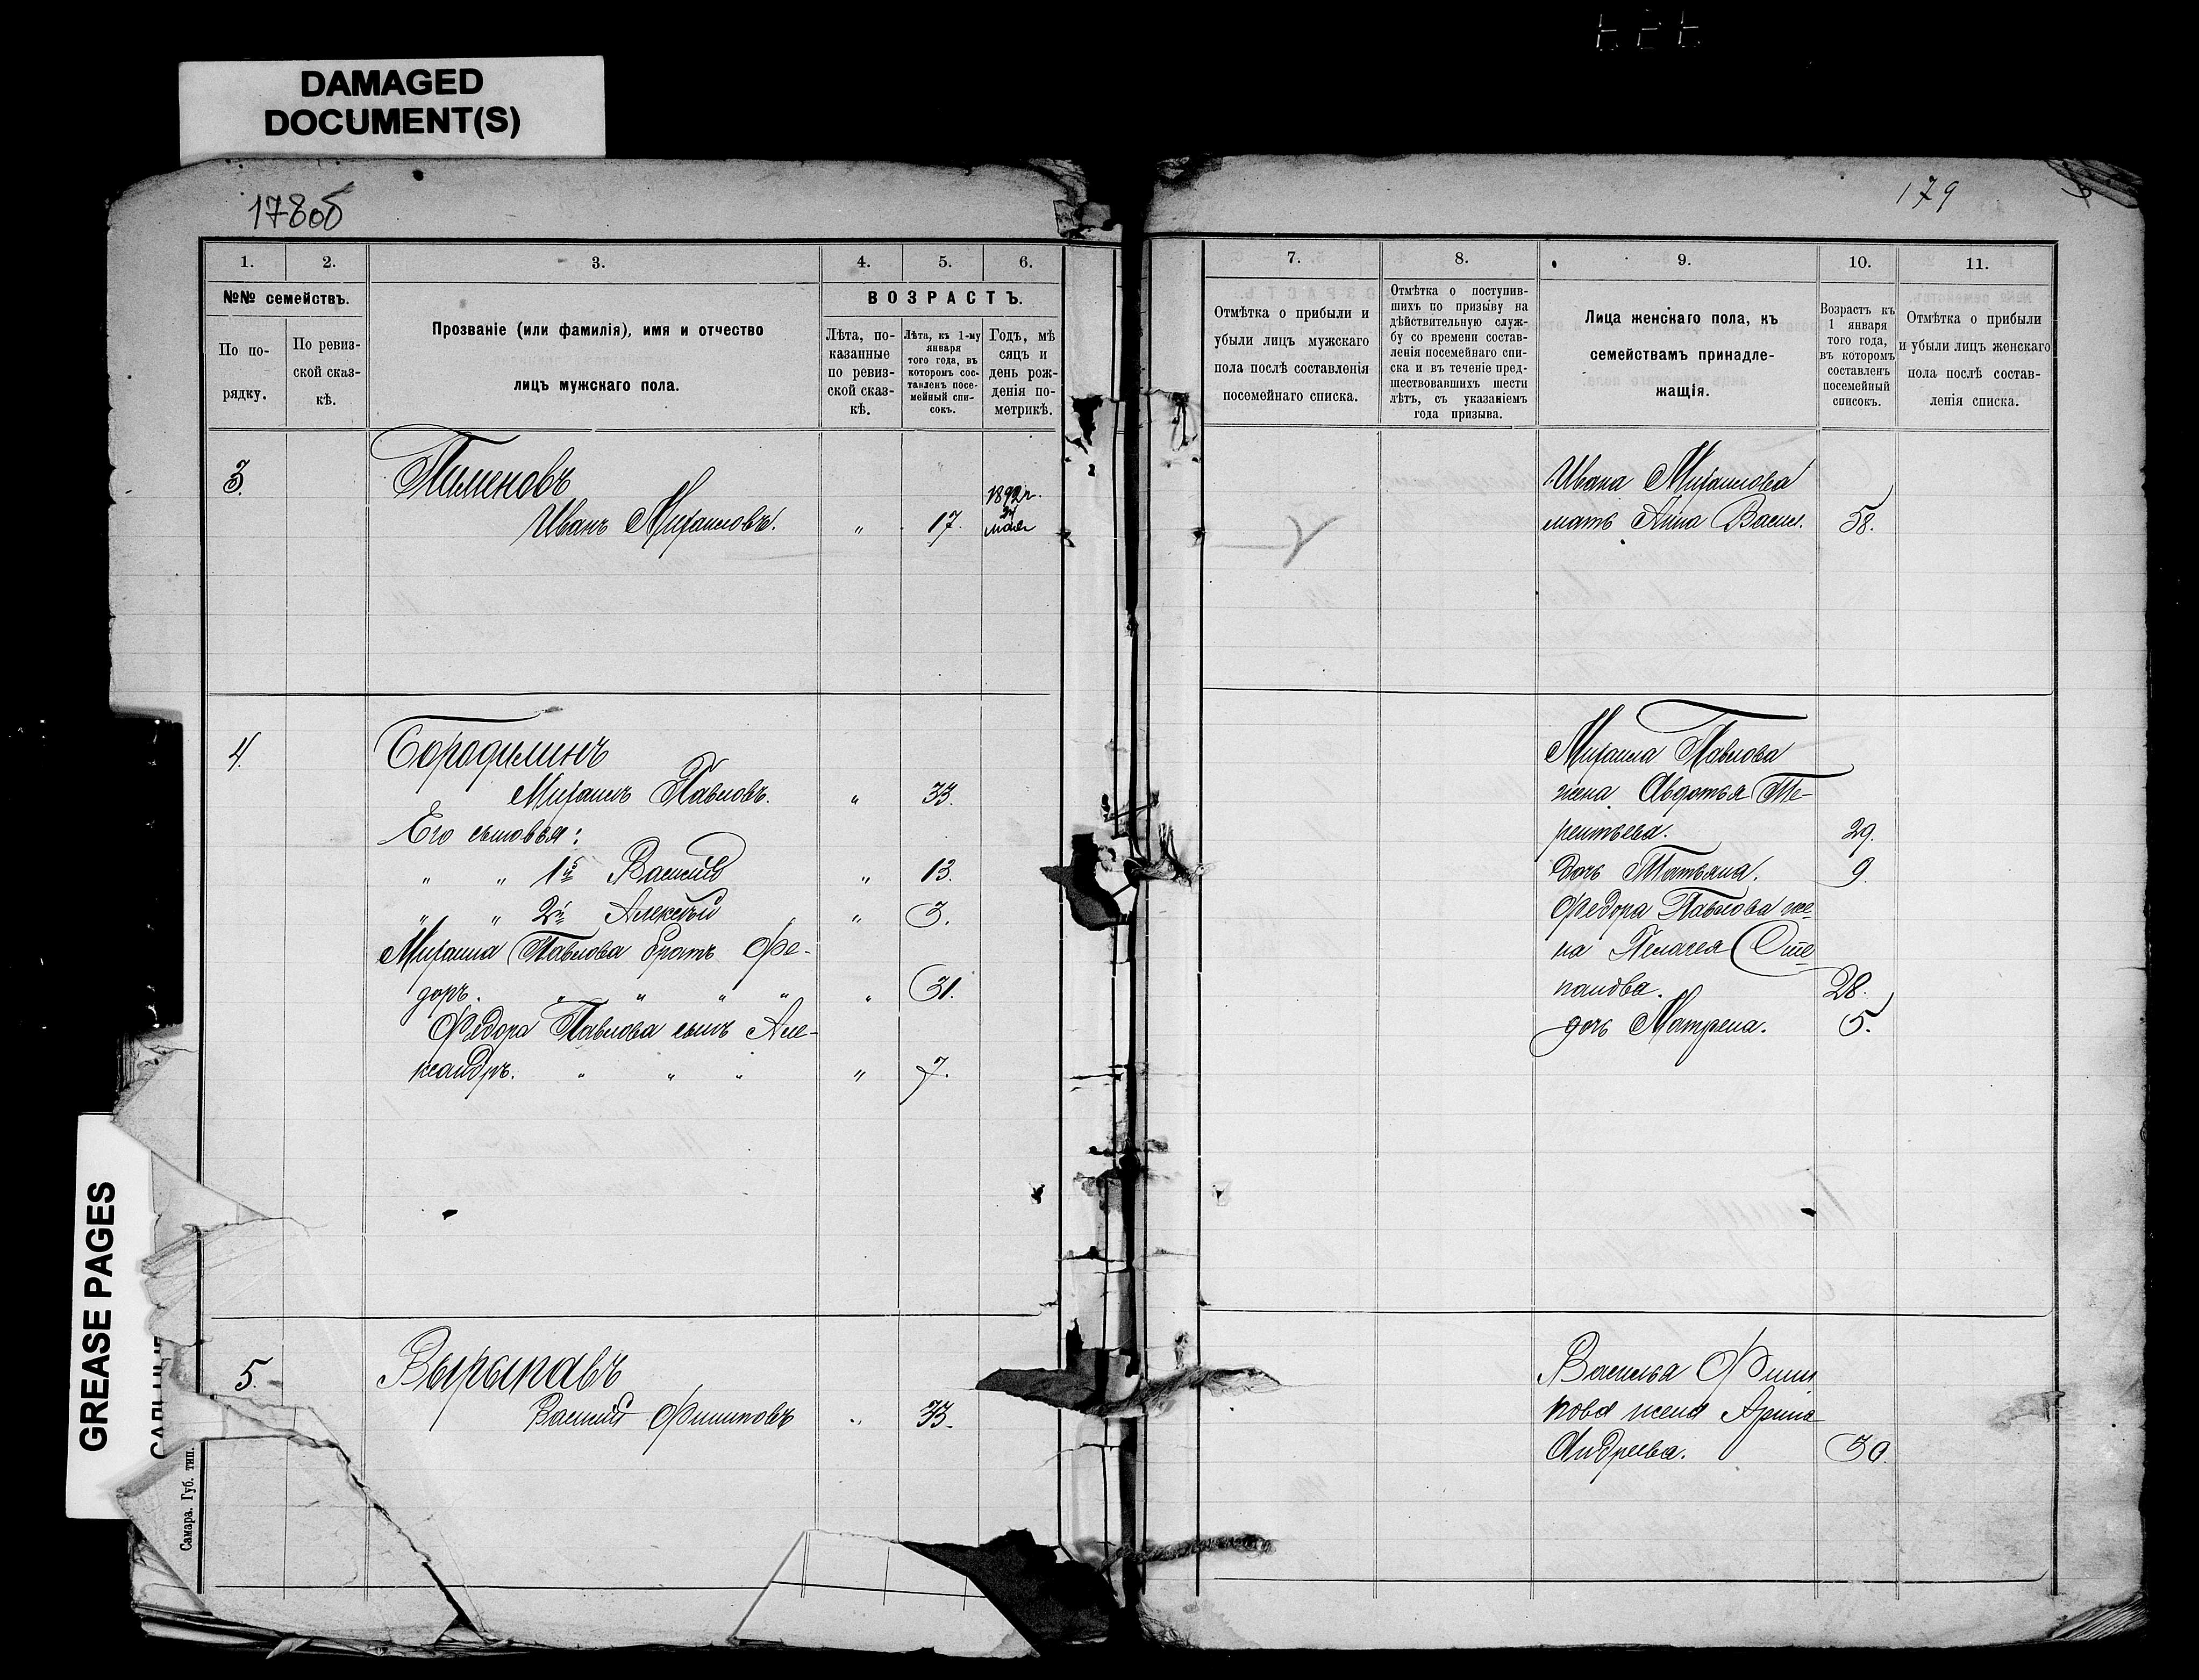 DAMAGED
DOCUMENT(S)
178об
1. 2. 3. 4. 5. 6.
№№ семействъ.
По по-
рядку.
По ревиз-
ской сказ-
кѣ.
Прозваніе (или фамилія), имя и отчество
лицъ мужскаго пола.
ВОЗРАСТЪ.
Лѣта, по-
казанные
по ревиз-
ской сказ-
кѣ.
Лѣта, къ 1-му
января
того года, въ
которомъ сос-
тавленъ посе-
мейный спи-
сокъ.
Годъ, мѣ
сяцъ и
день рож-
денія по-
метрикѣ.
3. Пименовъ
1892 г.
24
Иванъ Михаиловъ. „ 17. мая
4. Бородулинъ
Михаилъ Павловъ. „ 33.
Его сыновья:
„ „ 1й Василій „ 13.
„ „ 2й Алексѣй „ 3.
Михаила Павлова братъ Фе-
доръ. „ „ „ „ „ 31.
Федора Павлова сынъ Але-
ксандръ. „ „ „ „ 7.
5. Вырыпавъ
Василій Филиповъ „ 33.
GREASE PAGES
Самара. Губ. тип.
179
7. 8. 9. 10. 11.
Отмѣтка о прибыли и
убыли лицъ мужскаго
пола послѣ составленія
посемейнаго списка.
Отмѣтка о поступив-
шихъ по призыву на
дѣйствительную служ-
бу со времени состав-
ленія посемейнаго спи-
ска и въ теченіе пред-
шествовавшихъ шести
лѣтъ, съ указаніемъ
года призыва.
Лица женскаго пола, къ
семействамъ принадле-
жащія.
Возрастъ къ
1 января
того года,
въ которомъ
составленъ
посемейный
списокъ.
Отмѣтка о прибыли
и убыли лицъ женскаго
пола послѣ состав-
ленія списка.
Ивана Михаилова
мать Анна Васил. 58.
Михаила Павлова
жена Авдотья Те-
рентьева. 29.
дочь Татьяна. 9.
Федора Павлова же-
на Пелагея Сте
панова. 28.
дочь Матрена. 5.
Василья Фили
пова жена Арина
Андреева. 30.